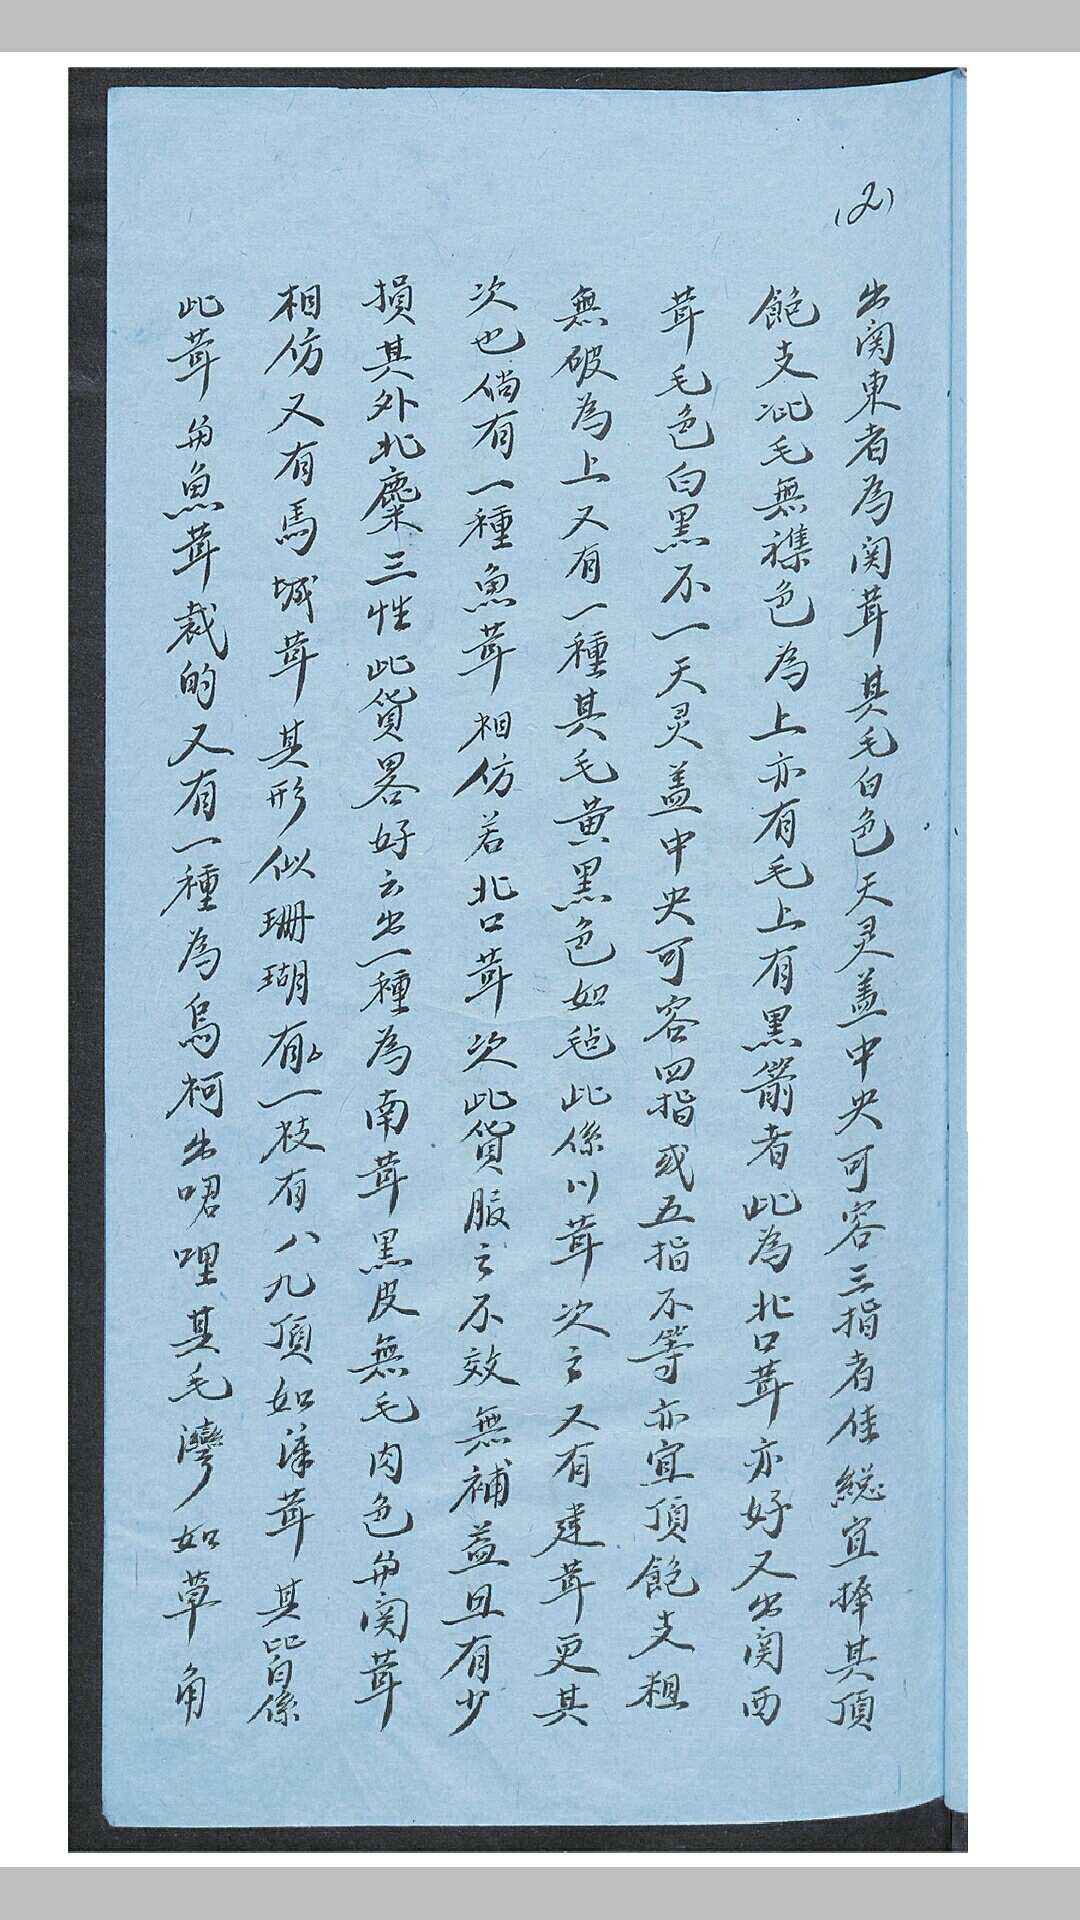 (2)
出関東者為関茸其毛白色天灵盖中央可容三指者佳総宜擇其頂
飽支泚毛無襍色為上亦有毛上有黑箭者此為北口茸亦好又出関西
茸毛色白黑不一天灵盖中央可容四指或五指不等亦宜頂飽支粗
無破為上又有一種其毛黄黑色如毡此係川茸次之又有建茸更其
次也倘有一種魚茸相仿若北口茸次此貨服之不效無補益且有少
損其外北麋三性此貨畧好云出一種為南茸黑皮無毛肉色与関茸
相仿又有馬城茸其形似珊瑚有一枝有八九頂如洋茸其皆係
此茸与魚茸裁的又有一種為烏柯出㗒哩其毛灣如草角